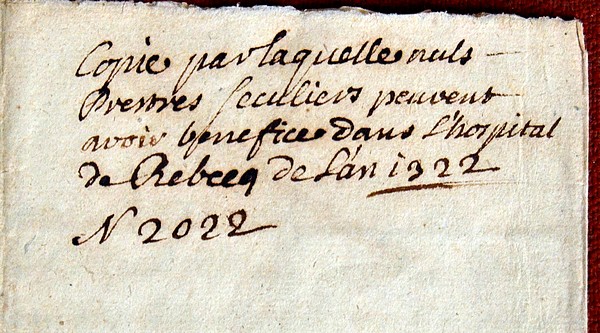 Copie par laquelle nuls
Prestres seculiers peuvent
avoir benefice dans L'hospital
de Rebecq de L'an 1322
N 2022